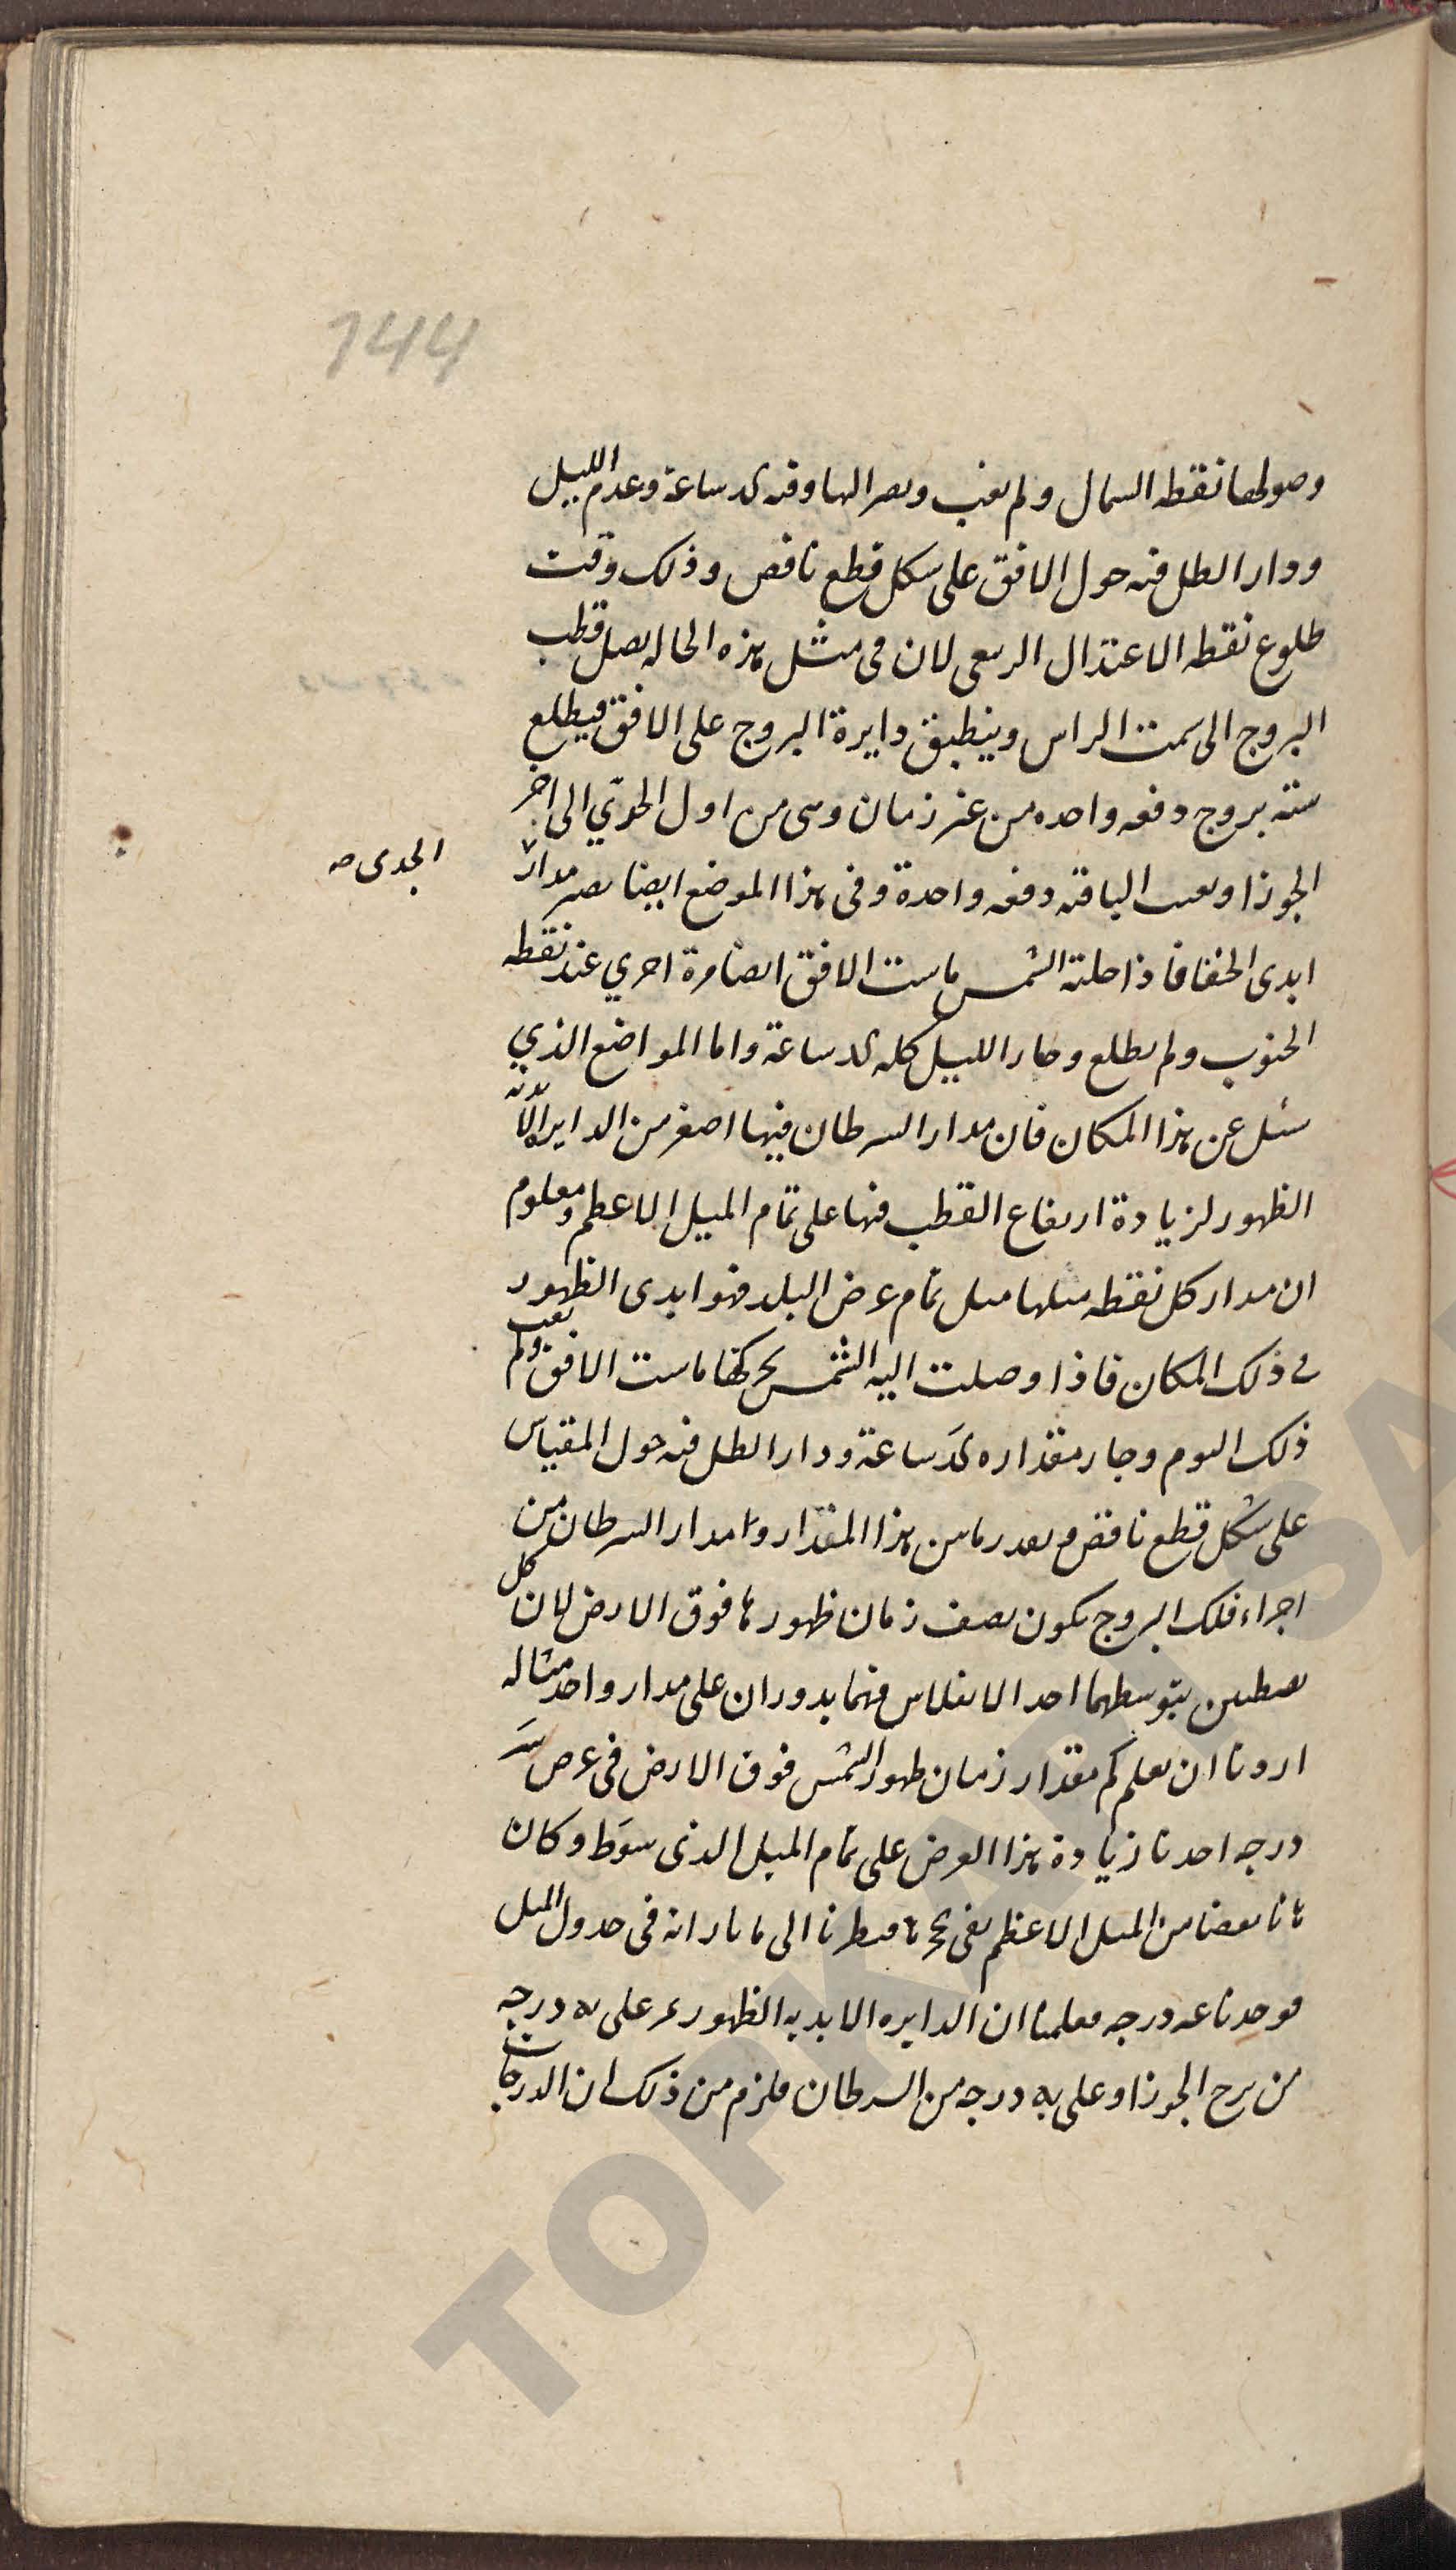 144
وصولها نقطه السمال ولم يغب ويصر النهار فيه كد ساعة وعدم الليل
ودار الظل فيه حول الافق على سكل قطع ناقص وذلك وقت
طلوع نقطه الاعتدال الربيعى لان فى مثل هذه الحاله يصل قطب
البروج الى سمت الراس وينطبق دايرة البروج على الافق فيطلع
سته بروج دفعه واحده من غير زمان وهى من اول الجدي الى اخر
الجوزا ويغيب الباقيه دفعه واحدة وفى هذا الموضع ايضا يصير مدار
الجدى صه
ابدى الخفا فاذا حلته الشمس ماست الافق ايضا مرة اخري عند نقطه
الجنوب ولم يطلع وصار الليل كله كد ساعة واما المواضع الذي
سئل عن هذا المكان فان مدار السرطان فيها اصغر من الدايره الابديه
الظهور لزيادة ارتفاع القطب فيها على تمام الميل الاعظم ومعلوم
ان مدار كل نقطه ميلها مىل تمام عرض البلد فهو ابدى الظهور
فى ذلك المكان فاذا وصلت اليه الشمس بحركتها ماست الافق ولم تغب
ذلك اليوم وصار مقداره كد ساعة ودار الظل فيه حول المقياس
على شكل قطع ناقص وبعد ما بين هذا المقدار ومدار السرطان من
اجزاء فلك البروج يكون نصف زمان ظهورها فوق الارض لان كل
نقطتين يتوسطهما احد الانقلابين فهما يدوران على مدار واحد مثاله
اردنا ان نعلم كم مقدار زمان ظهور الشمس فوق الارض فى عرض سَر
درجه اخذنا زيادة هذا العرض على تمام الميل الذى سوَط وكان
نقصنا من الميل الاعظم بقى فنظرنا الى ما بازائه فى جدول الميل
فوجدنا عه درجه فعلمنا ان الدايره الابديه الظهور تمر على يه درجه
من برج الجوزا وعلى يه درجه من السرطان فلزم من ذلك ان الدرجات